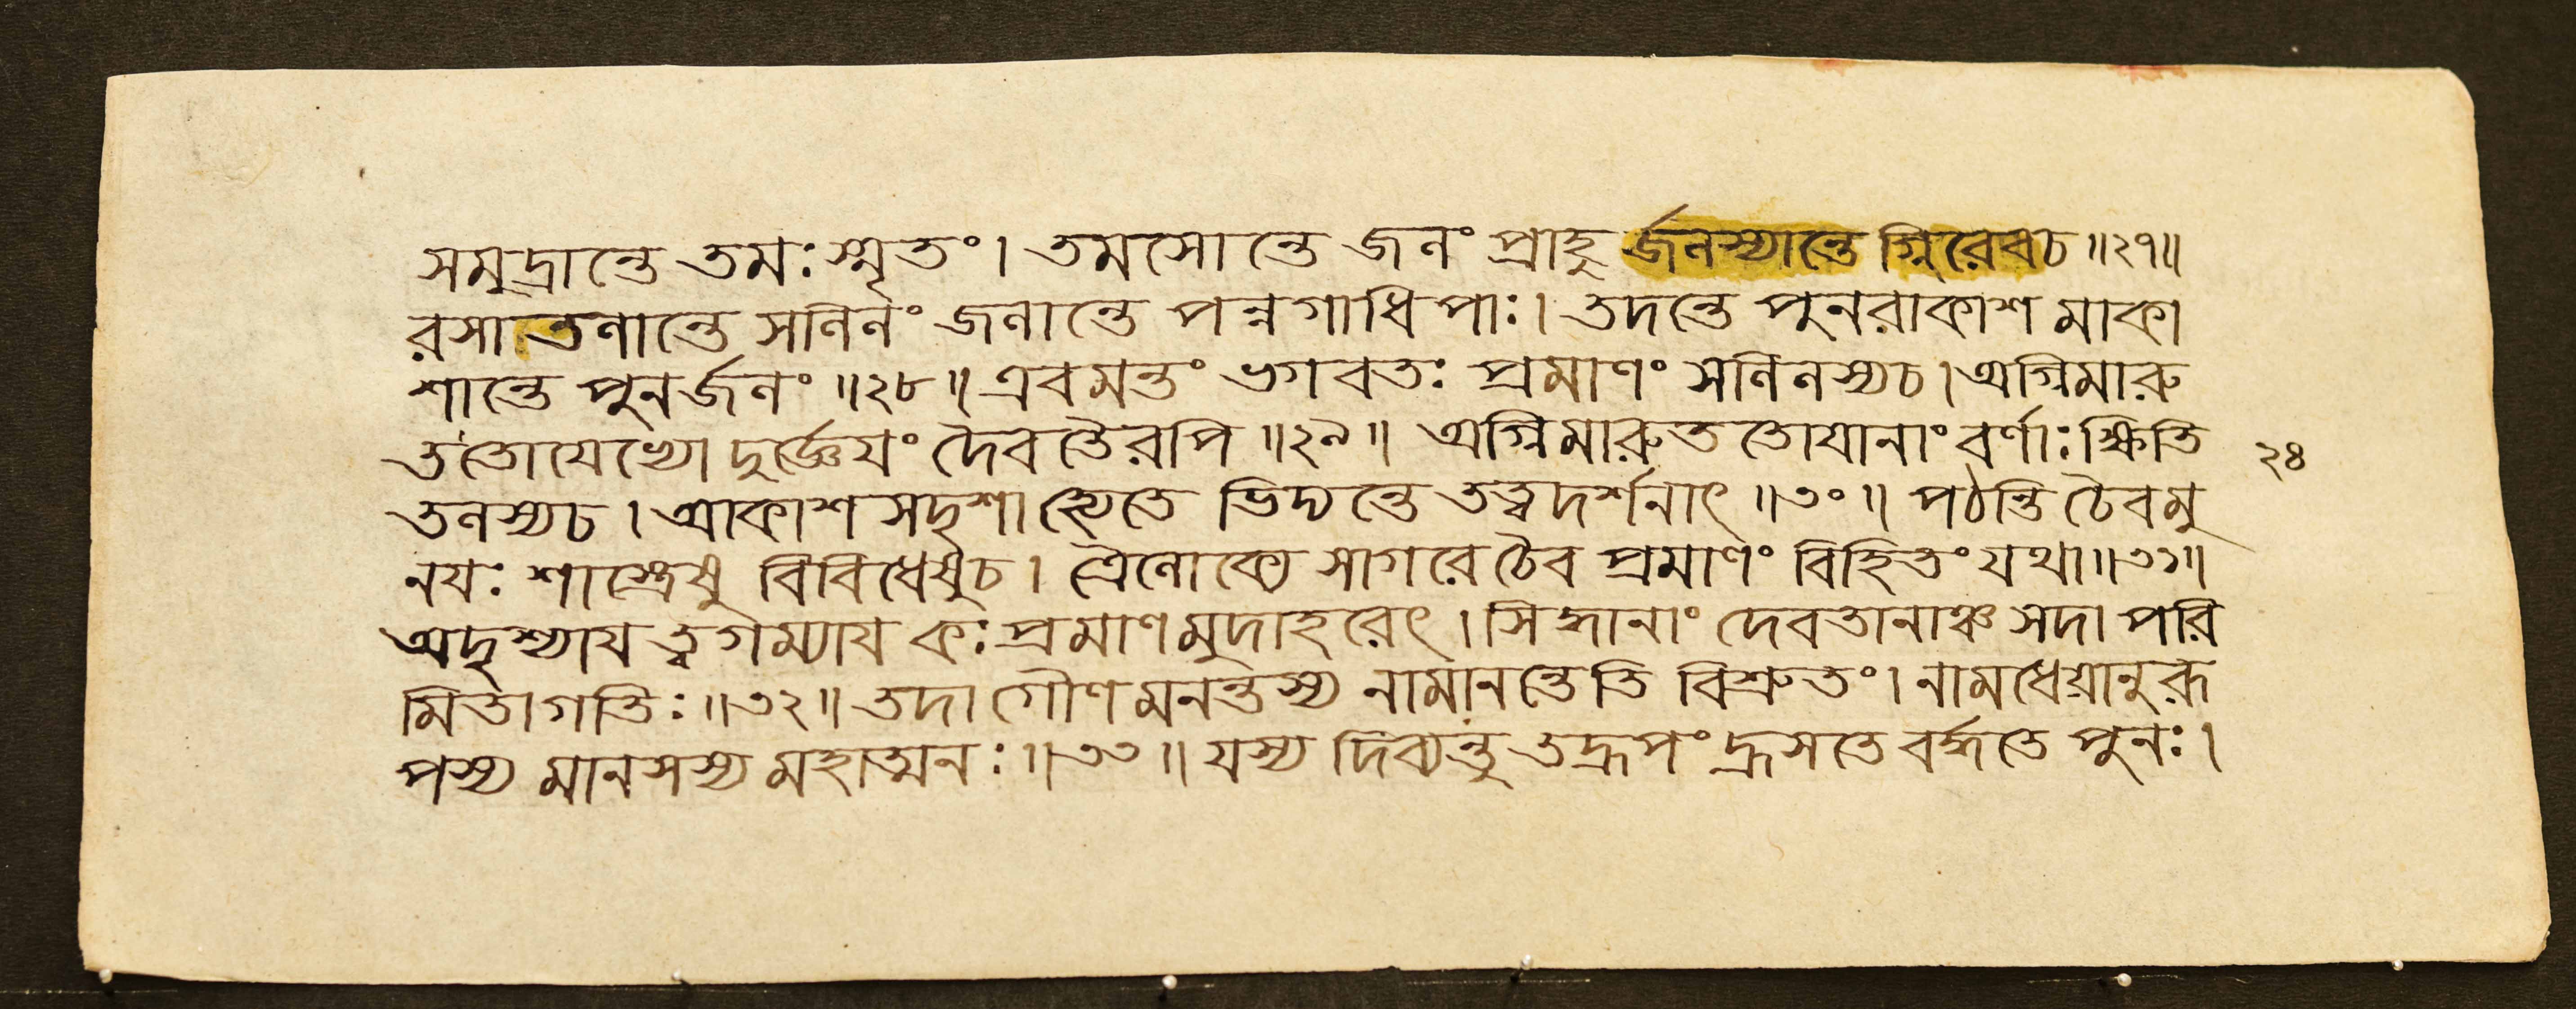 সমুদ্রান্তে তমঃ স্মৃতং। তমসোন্তে জলং প্রাহু র্জলস্যান্তে গ্নিরেবচ॥২৭॥
রসাতলান্তে সলিলং জলান্তে পন্নগাধিপাঃ। তদন্তে পুনরাকাশ মাকা
শান্তে পুনর্জলং॥২৮॥ এবমন্তং ভগবতঃ প্রমাণং সলিলস্যচ। অগ্নিমারু
ততোযেভ্যো দুর্জ্ঞেযং দৈবতৈরপি॥২৯॥ অগ্নিমারুত তোযানাং বর্ণাঃ ক্ষিতি
তলস্যচ। আকাশ সদৃশা হ্যেতে ভিদ্যন্তে তত্ত্বদর্শনাৎ॥৩০॥ পঠন্তি চৈবমু
নযঃ শাস্ত্রেষু বিবিধেষুচ। ত্রৈলোক্যে সাগরে চৈব প্রমাণং বিহিতং যথা॥৩১॥
অদৃশ্যায ত্বগম্যায কঃ প্রমাণ মুদাহরেৎ। সিদ্ধানাং দেবতানাঞ্চ সদা পরি
মিতাগতিঃ॥৩২॥ তদা গৌণ মনন্তস্য নামানন্তেতি বিশ্রুতং। নামধেয়ানুরূ
পস্য মানসস্য মহাত্মনঃ॥৩৩॥ যস্য দিব্যন্তু তদ্রূপং হ্রসতে বর্দ্ধতে পুনঃ।
২৪